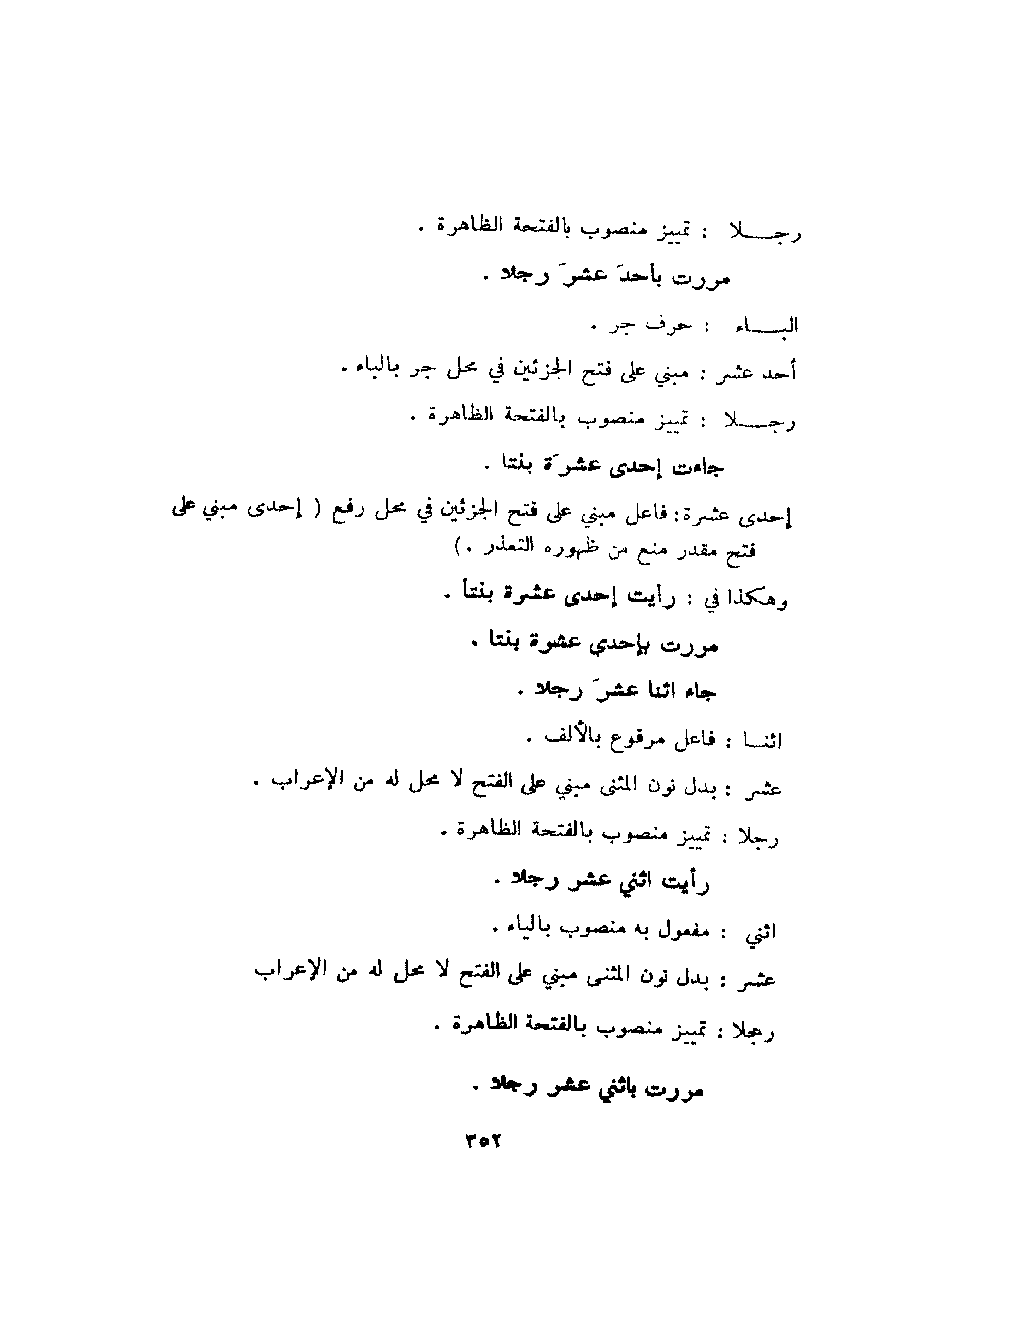 رجـــلا : تمييز منصوب بالفتحة الظاهرة .
مررت بأحدَ عشرَ رجلا .
البـــاء : حرف جر .
أحد عشر : مبني على فتح الجزئين في محل جر بالباء .
رجـــلا : تمييز منصوب بالفتحة الظاهرة .
جاءت إحدى عشرَة بنتا .
إحدى عشرة : فاعل مبني على فتح الجزئين في محل رفع ( إحدى مبني على
فتح مقدر منع من ظهوره التعذر . )
وهكذا في : رأيت إحدى عشرة بنتاً .
مررت بإحدى عشرة بنتا .
جاء اثنا عشرَ رجلا .
اثنــا : فاعل مرفوع بالألف .
عشر : بدل نون المثنى مبني على الفتح لا محل له من الإعراب .
رجلا : تمييز منصوب بالفتحة الظاهرة .
رأيت اثني عشر رجلا .
اثني : مفعول به منصوب بالياء .
عشر : بدل نون المثنى مبني على الفتح لا محل له من الإعراب
رجلا : تمييز منصوب بالفتحة الظاهرة .
مررت باثني عشر رجلا .
٣٥٢